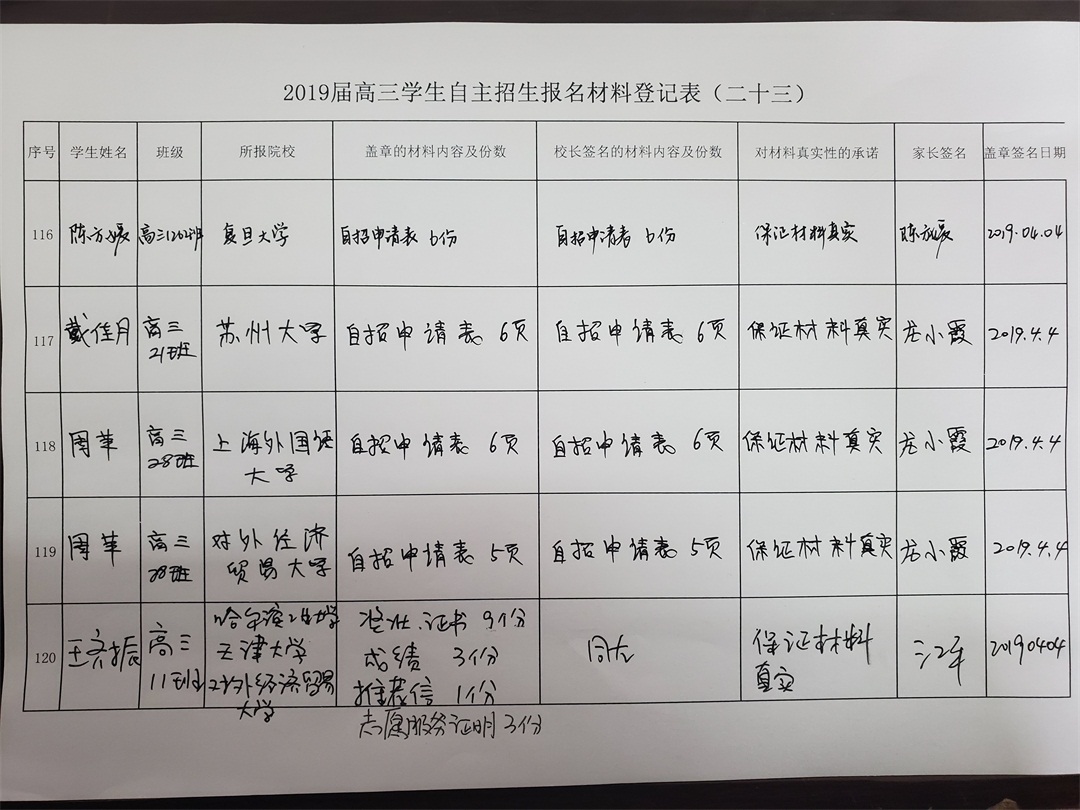 2019届高三学生自主招生报名材料登记表（二十三）
序号 学生姓名 班级 所报院校 盖章的材料内容及份数 校长签名的材料内容及份数 对材料真实性的承诺 家长签名 盖章签名日期
116 陈方媛 高三1202班 复旦大学 自招申请表 6份 自招申请表 6份 保证材料真实 陈方媛 2019.04.04
117 戴佳月 高三 苏州大学 自招申请表 6页 自招申请表 6页 保证材料真实 龙小霞 2019.4.4
21班
118 周苹 高三 上海外国语 自招申请表 6页 自招申请表 6页 保证材料真实 龙小霞 2019.4.4
28班 大学
119 周苹 高三 对外经济 自招申请表 5页 自招申请表 5页 保证材料真实 龙小霞 2019.4.4
28班 贸易大学
哈尔滨工业大学 奖状、证书 9份
120 王齐振 高三 天津大学 成绩 3份 同左 保证材料 20190404
11班 对外经济贸易 推荐信 1份 真实
大学 志愿服务证明 3份